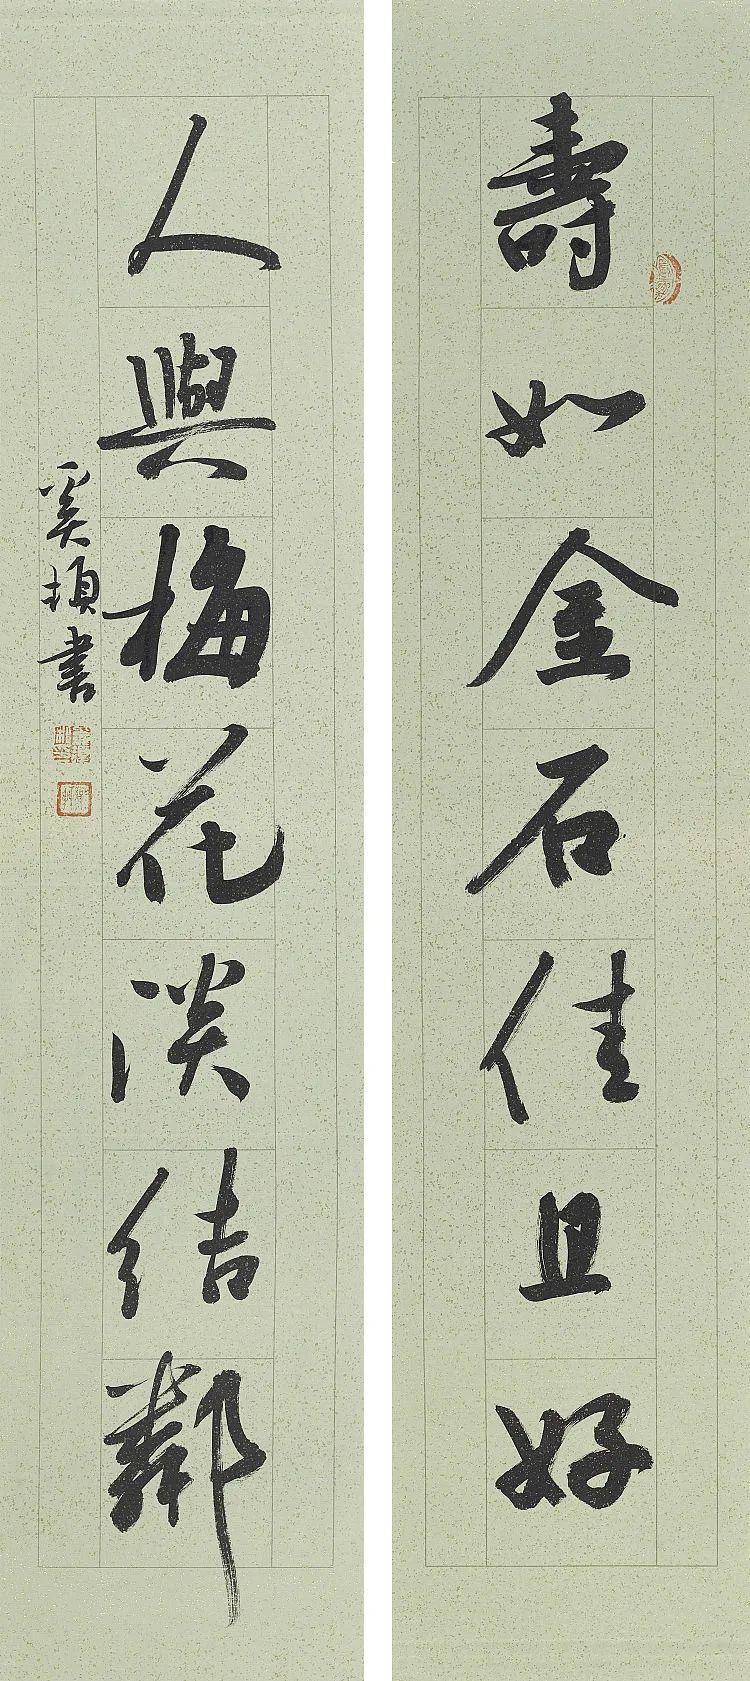 壽如金石佳且好
人與梅花淡結鄰
奚頊書